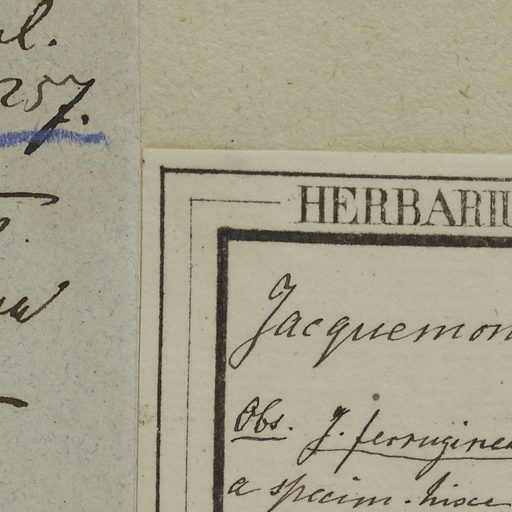 257.
HERBARIU
Jacquemon
Obs. J. ferruginea
a specim. hisce